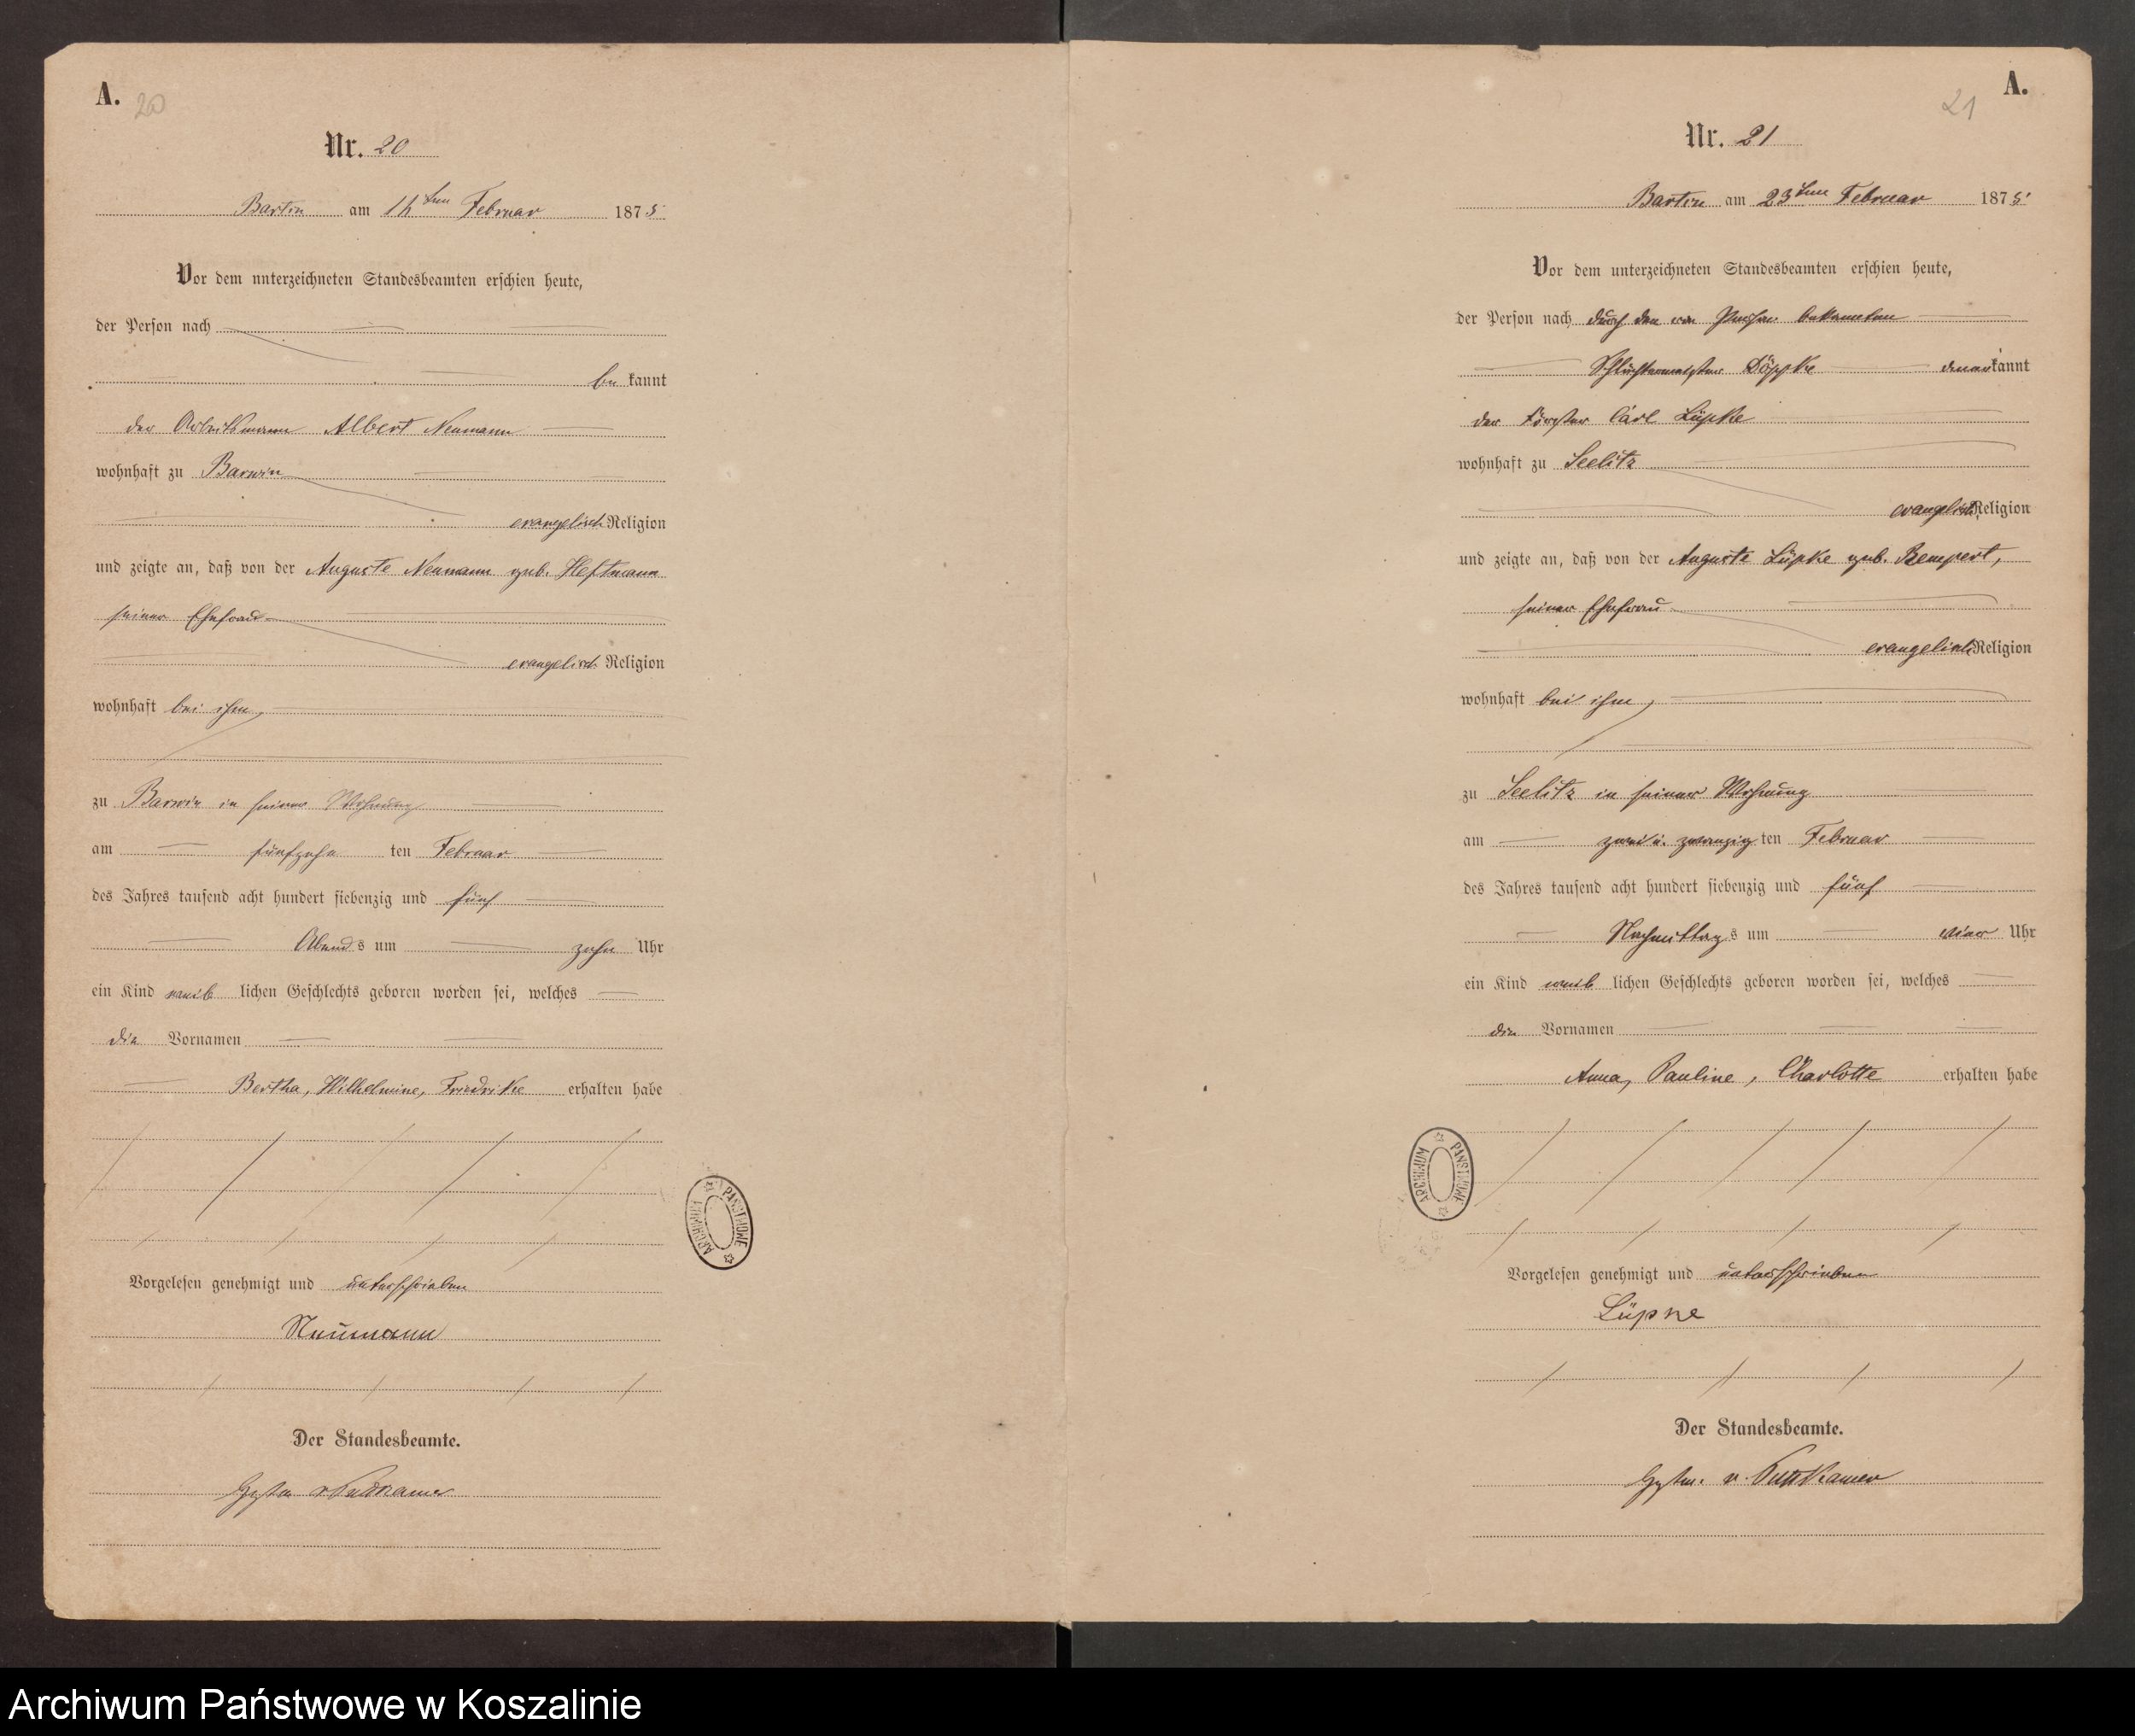 A.
20
Nr. 20
Bartin am 16ten Februar 1875
Vor dem unterzeichneten Standesbeamten erschien heute,
der Person nach
be kannt
der Arbeitsmann Albert Neumann
wohnhaft zu Barwin
evangelisch Religion
und zeigte an, daß von der Auguste Neumann geb. Heftmann
seiner Ehefrau
evangelisch Religion
wohnhaft bei ihm,
zu Barwin in seiner Wohnung
am fünfzehn ten Februar
des Jahres tausend acht hundert siebenzig und fünf
Abends um zehn Uhr
ein Kind weib lichen Geschlechts geboren worden sei, welches
die Vornamen
Bertha, Wilhelmine, Friedrike erhalten habe
Vorgelesen genehmigt und unterschrieben
Neumann
Der Standesbeamte.
v Puttkamer
ARCHIWUM PAŃSTWOWE
A.
21
Nr. 21
Bartin am 23ten Februar 1875
Vor dem unterzeichneten Standesbeamten erschien heute,
der Person nach durch den von Person bekannten
Döppke anerkannt
der Förster Carl Lüpke
wohnhaft zu Seelitz
evangelisch Religion
und zeigte an, daß von der Auguste Lüpke geb. Rempert,
seiner Ehefrau
evangelisch Religion
wohnhaft bei ihm,
zu Seelitz in seiner Wohnung
am zwei u. zwanzig ten Februar
des Jahres tausend acht hundert siebenzig und fünf
Nachmittags um vier Uhr
ein Kind weib lichen Geschlechts geboren worden sei, welches
die Vornamen
Anna, Pauline, Charlotte erhalten habe
ARCHIWUM PAŃSTWOWE
Vorgelesen genehmigt und unterschrieben
Lüpke
Der Standesbeamte.
v. Puttkamer
Archiwum Państwowe w Koszalinie